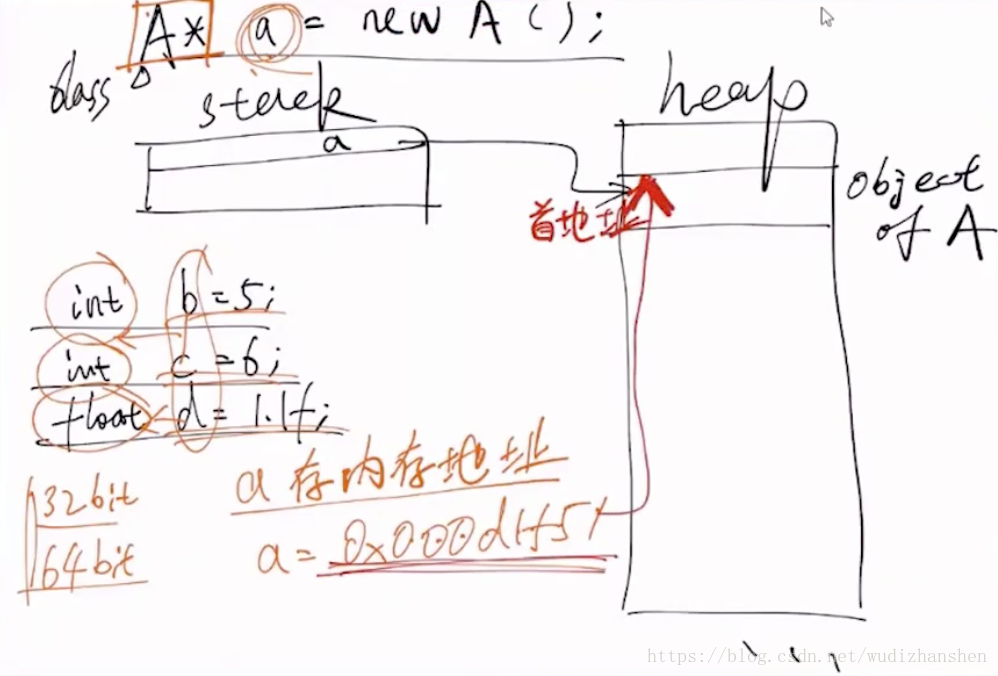 A* a = new A();
class
stack
heap
a
object
of A
首地址
int b=5;
int c=6;
float d=1.1f;
32bit
64bit
a 存内存地址
a=0x000d1f51
https://blog.csdn.net/wudizhanshen